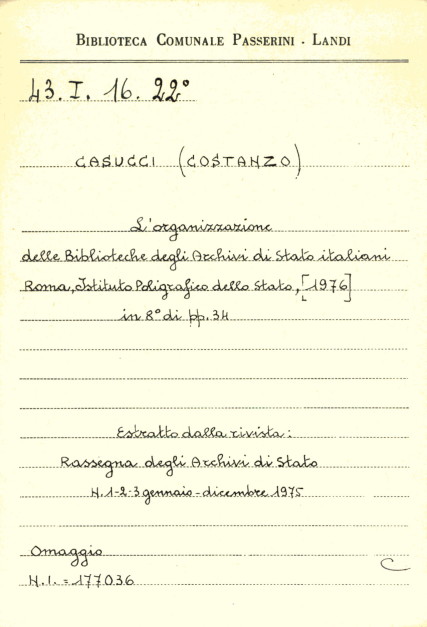 BIBLIOTECA COMUNALE PASSERINI - LANDI
43. I. 16. 22°
CASUCCI (COSTANZO)
L'organizzazione
delle Biblioteche degli Archivi di Stato italiani
Roma, Istituto Poligrafico dello Stato, [1976]
in 8° di pp. 34
Estratto dalla rivista:
Rassegna degli Archivi di Stato
N. 1-2-3 gennaio - dicembre 1975
Omaggio
C
N.I. = 177036